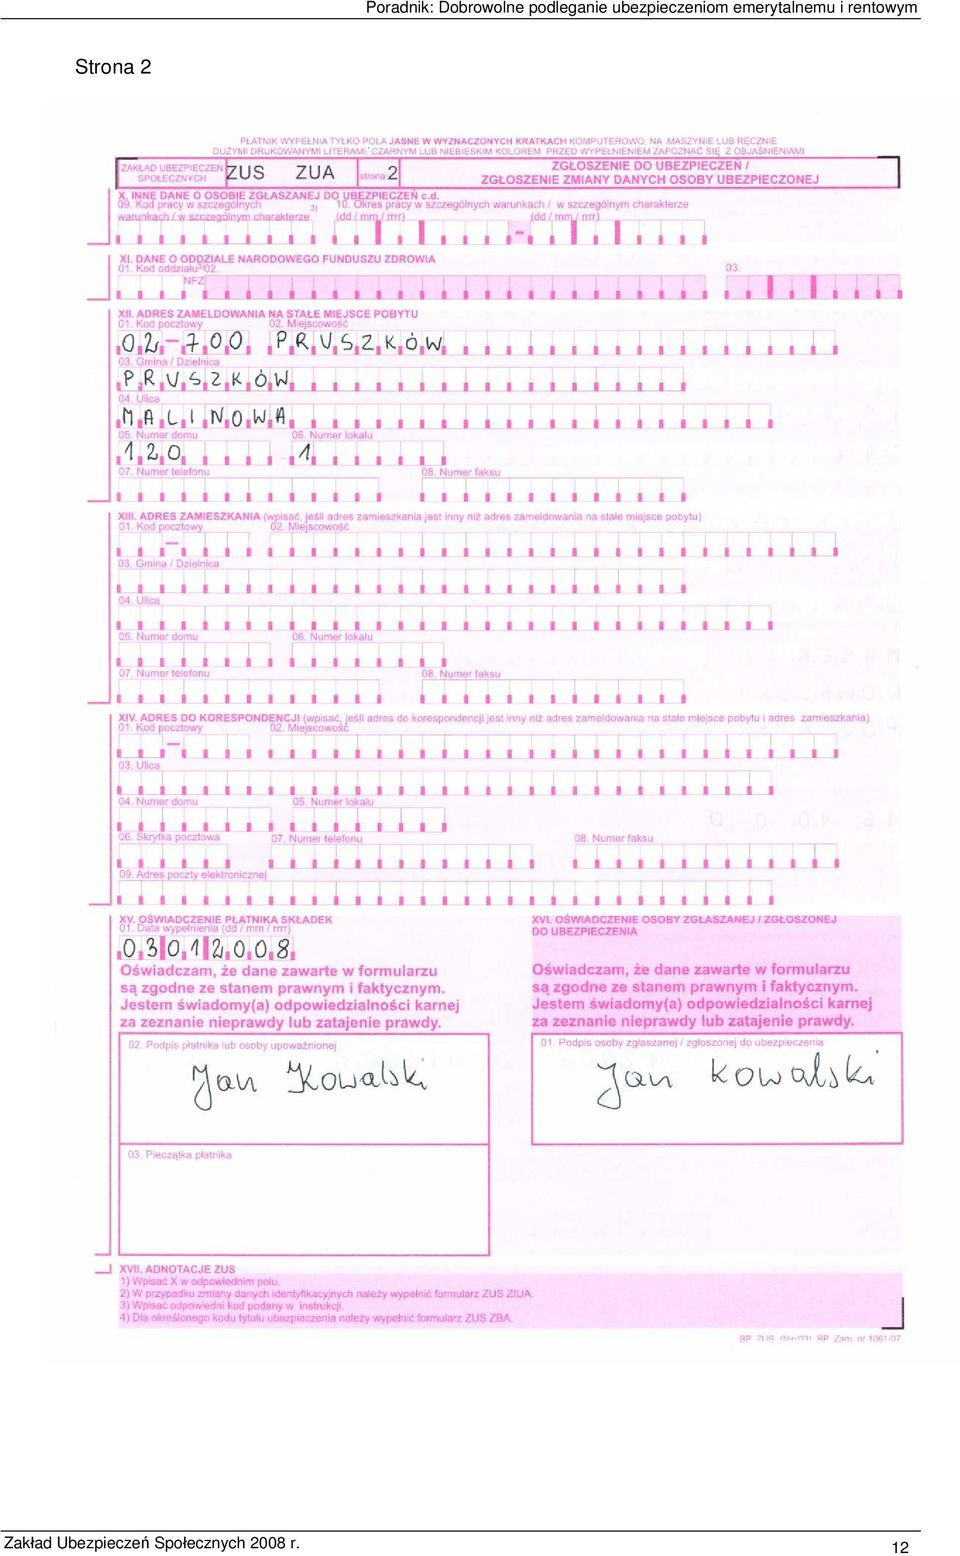 Poradnik: Dobrowolne podleganie ubezpieczeniom emerytalnemu i rentowym
Strona 2
PŁATNIK WYPEŁNIA TYLKO POLA JASNE W WYZNACZONYCH KRATKACH KOMPUTEROWO, NA MASZYNIE LUB RĘCZNIE
DUŻYMI DRUKOWANYMI LITERAMI, CZARNYM LUB NIEBIESKIM KOLOREM. PRZED WYPEŁNIENIEM ZAPOZNAĆ SIĘ Z OBJAŚNIENIAMI
ZAKŁAD UBEZPIECZEŃ SPOŁECZNYCH ZUS ZUA strona 2
ZGŁOSZENIE DO UBEZPIECZEŃ /
ZGŁOSZENIE ZMIANY DANYCH OSOBY UBEZPIECZONEJ
X. INNE DANE O OSOBIE ZGŁASZANEJ DO UBEZPIECZEŃ c.d.
09. Kod pracy w szczególnych warunkach / w szczególnym charakterze 3) 10. Okres pracy w szczególnych warunkach / w szczególnym charakterze
(dd / mm / rrrr) (dd / mm / rrrr)
-
XI. DANE O ODDZIALE NARODOWEGO FUNDUSZU ZDROWIA
01. Kod oddziału 3) 02. 03.
NFZ
XII. ADRES ZAMELDOWANIA NA STAŁE MIEJSCE POBYTU
01. Kod pocztowy 02. Miejscowość
02-700 PRUSZKÓW
03. Gmina / Dzielnica
PRUSZKÓW
04. Ulica
MALINOWA
05. Numer domu 06. Numer lokalu
120 1
07. Numer telefonu 08. Numer faksu
XIII. ADRES ZAMIESZKANIA (wpisać, jeśli adres zamieszkania jest inny niż adres zameldowania na stałe miejsce pobytu)
01. Kod pocztowy 02. Miejscowość
-
03. Gmina / Dzielnica
04. Ulica
05. Numer domu 06. Numer lokalu
07. Numer telefonu 08. Numer faksu
XIV. ADRES DO KORESPONDENCJI (wpisać, jeśli adres do korespondencji jest inny niż adres zameldowania na stałe miejsce pobytu i adres zamieszkania)
01. Kod pocztowy 02. Miejscowość
-
03. Ulica
04. Numer domu 05. Numer lokalu
06. Skrytka pocztowa 07. Numer telefonu 08. Numer faksu
09. Adres poczty elektronicznej
XV. OŚWIADCZENIE PŁATNIKA SKŁADEK
01. Data wypełnienia (dd / mm / rrrr)
03012008
Oświadczam, że dane zawarte w formularzu
są zgodne ze stanem prawnym i faktycznym.
Jestem świadomy(a) odpowiedzialności karnej
za zeznanie nieprawdy lub zatajenie prawdy.
02. Podpis płatnika lub osoby upoważnionej
Jan Kowalski
03. Pieczątka płatnika
XVI. OŚWIADCZENIE OSOBY ZGŁASZANEJ / ZGŁOSZONEJ
DO UBEZPIECZENIA
Oświadczam, że dane zawarte w formularzu
są zgodne ze stanem prawnym i faktycznym.
Jestem świadomy(a) odpowiedzialności karnej
za zeznanie nieprawdy lub zatajenie prawdy.
01. Podpis osoby zgłaszanej / zgłoszonej do ubezpieczenia
Jan Kowalski
XVII. ADNOTACJE ZUS
1) Wpisać X w odpowiednim polu.
2) W przypadku zmiany danych identyfikacyjnych należy wypełnić formularz ZUS ZIUA.
3) Wpisać odpowiedni kod podany w instrukcji.
4) Dla określonego kodu tytułu ubezpieczenia należy wypełnić formularz ZUS ZBA.
Zam. nr 1061/07
Zakład Ubezpieczeń Społecznych 2008 r.
12